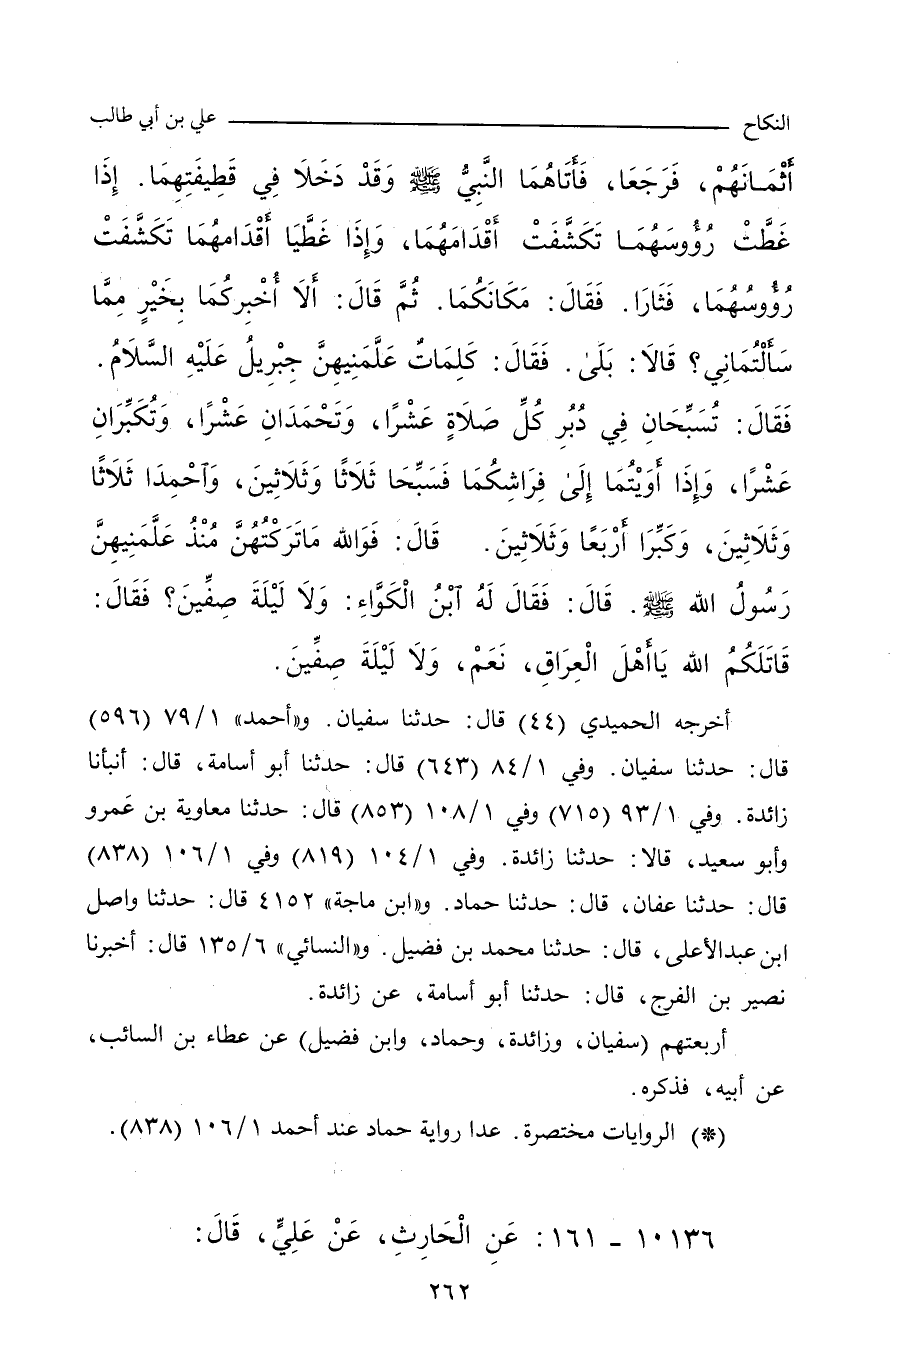 النكاح علي بن أبي طالب
أَثْمَانَهُمْ، فَرَجَعَا، فَأَتَاهُمَا النَّبِيُّ ﷺ وَقَدْ دَخَلَا فِي قَطِيفَتِهِمَا. إِذَا
غَطَّتْ رُؤُوسَهُمَا تَكَشَّفَتْ أَقْدَامَهُمَا، وَإِذَا غَطَّيَا أَقْدَامهُمَا تَكَشَّفَتْ
رُؤُوسُهُمَا، فَثَارَا. فَقَالَ: مَكَانَكُمَا. ثُمَّ قَالَ: أَلَا أُخْبِركُمَا بِخَيْرٍ مِمَّا
سَأَلْتُمَانِي؟ قَالَا: بَلَىٰ. فَقَالَ: كَلِمَاتٌ عَلَّمَنِيهِنَّ جِبْرِيلُ عَلَيْهِ السَّلَامُ.
فَقَالَ: تُسَبِّحَانِ فِي دُبُرِ كُلِّ صَلَاةٍ عَشْرًا، وَتَحْمَدَانِ عَشْرًا، وَتُكَبِّرَانِ
عَشْرًا، وَإِذَا أَوَيْتُمَا إِلَىٰ فِرَاشِكُمَا فَسَبِّحَا ثَلَاثًا وَثَلَاثِينَ، وَٱحْمِدَا ثَلَاثًا
وَثَلَاثِينَ، وَكَبِّرَا أَرْبَعًا وَثَلَاثِينَ. قَالَ: فَوَالله مَاتَرَكْتُهُنَّ مُنْذُ عَلَّمَنِيهِنَّ
رَسُولُ الله ﷺ. قَالَ: فَقَالَ لَهُ ٱبْنُ الْكَوَّاءِ: وَلَا لَيْلَةَ صِفِّينَ؟ فَقَالَ:
قَاتَلَكُمُ الله يَاأَهْلَ الْعِرَاقِ، نَعَمْ، وَلَا لَيْلَةَ صِفِّينَ.
أخرجه الحميدي (٤٤) قال: حدثنا سفيان. و«أحمد» ١/ ٧٩ (٥٩٦)
قال: حدثنا سفيان. وفي ١/ ٨٤ (٦٤٣) قال: حدثنا أبو أسامة، قال: أنبأنا
زائدة. وفي ١/ ٩٣ (٧١٥) وفي ١/ ١٠٨ (٨٥٣) قال: حدثنا معاوية بن عَمرو
وأبو سعيد، قالا: حدثنا زائدة. وفي ١/ ١٠٤ (٨١٩) وفي ١/ ١٠٦ (٨٣٨)
قال: حدثنا عفان، قال: حدثنا حماد. و«ابن ماجة» ٤١٥٢ قال: حدثنا واصل
ابن عبدالأعلى، قال: حدثنا محمد بن فضيل. و«النسائي» ٦/ ١٣٥ قال: أخبرنا
نصير بن الفرج، قال: حدثنا أبو أسامة، عن زائدة.
أربعتهم (سفيان، وزائدة، وحماد، وابن فضيل) عن عطاء بن السائب،
عن أبيه، فذكره.
(*) الروايات مختصرة. عدا رواية حماد عند أحمد ١/ ١٠٦ (٨٣٨).
١٠١٣٦ ـ ١٦١: عَنِ الْحَارِثِ، عَنْ عَلِيٍّ، قَالَ:
٢٦٢